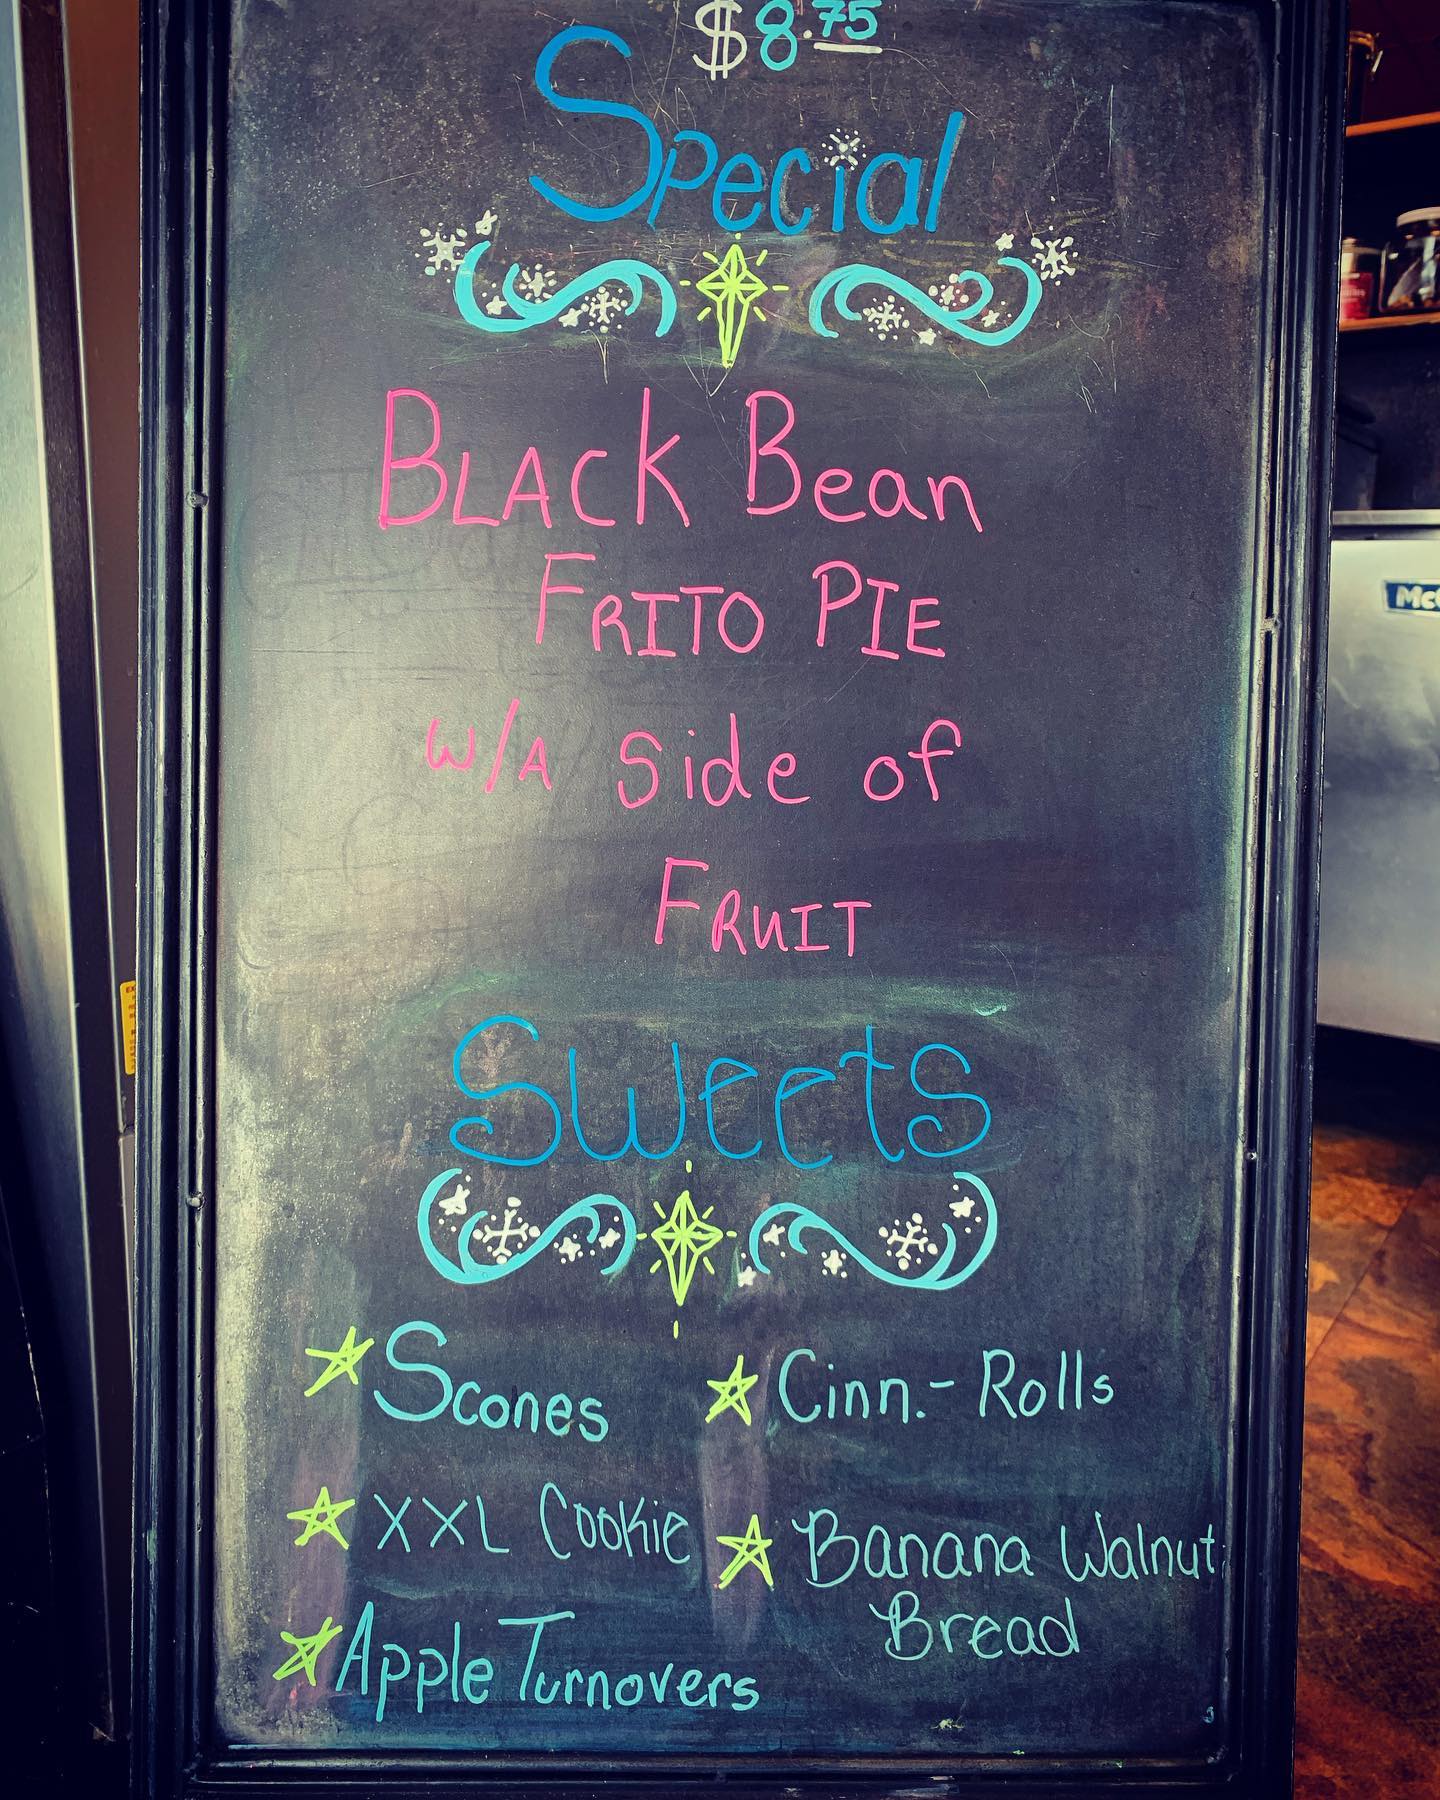 $8.75
Special
Black Bean
Frito Pie
w/A Side of
Fruit
Sweets
Scones
Cinn.- Rolls
XXL Cookie
Banana Walnut
Bread
Apple Turnovers